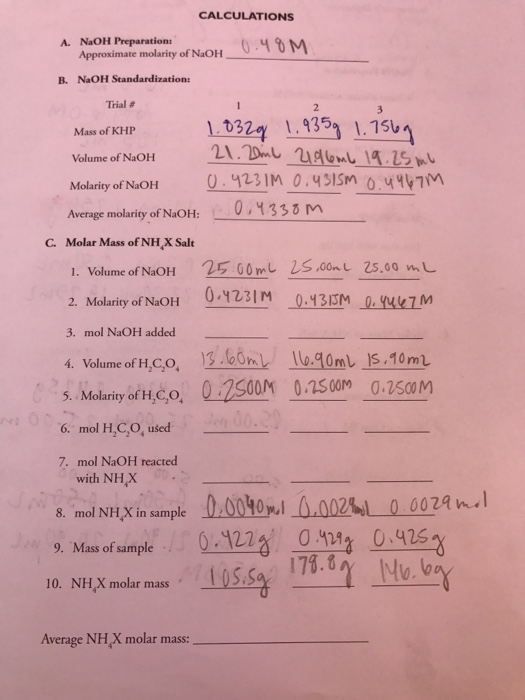 CALCULATIONS
A. NaOH Preparation:
Approximate molarity of NaOH 0.48M
B. NaOH Standardization:
Trial # 1 2 3
Mass of KHP 1.832g 1.935g 1.756g
Volume of NaOH 21.20mL 21.96mL 19.25mL
Molarity of NaOH 0.4231M 0.4315M 0.4467M
Average molarity of NaOH: 0.4338M
C. Molar Mass of NH₄X Salt
1. Volume of NaOH 25.00mL 25.00mL 25.00mL
2. Molarity of NaOH 0.4231M 0.4315M 0.4467M
3. mol NaOH added
4. Volume of H₂C₂O₄ 13.60mL 16.90mL 15.90mL
5. Molarity of H₂C₂O₄ 0.2500M 0.2500M 0.2500M
6. mol H₂C₂O₄ used
7. mol NaOH reacted
with NH₄X
8. mol NH₄X in sample 0.0040mol 0.0029mol
9. Mass of sample 0.422g 0.429g 0.425g
10. NH₄X molar mass 105.5g 178.8g 146.6g
Average NH₄X molar mass: